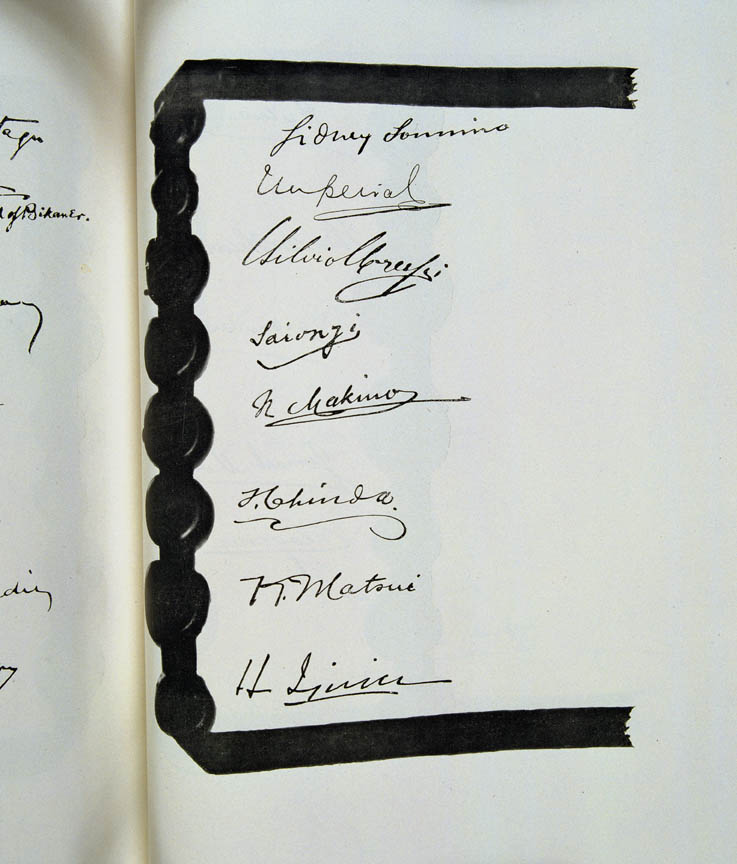 of Bikaner.
Sidney Sonnino
Imperiali
Silvio Crespi
Saionzi
N Makino
S. Chinda.
K. Matsui
H Ijuin